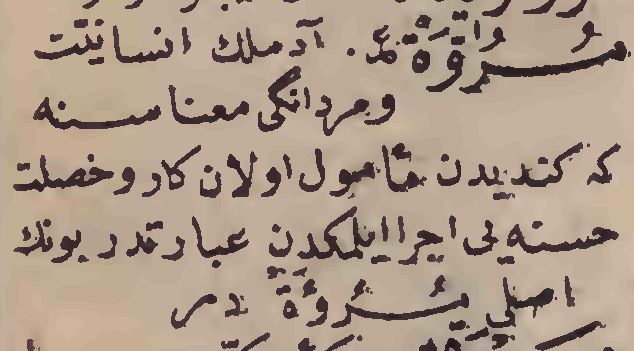 مُرُوَّة ع. آدملك انسانيّت
و مردانگى معناسنه
كه كنديدن مأمول اولان كار و خصلت
حسنه يى اجرا ايلمكدن عبارتدر بونك
اصلى مُرُوءَة در